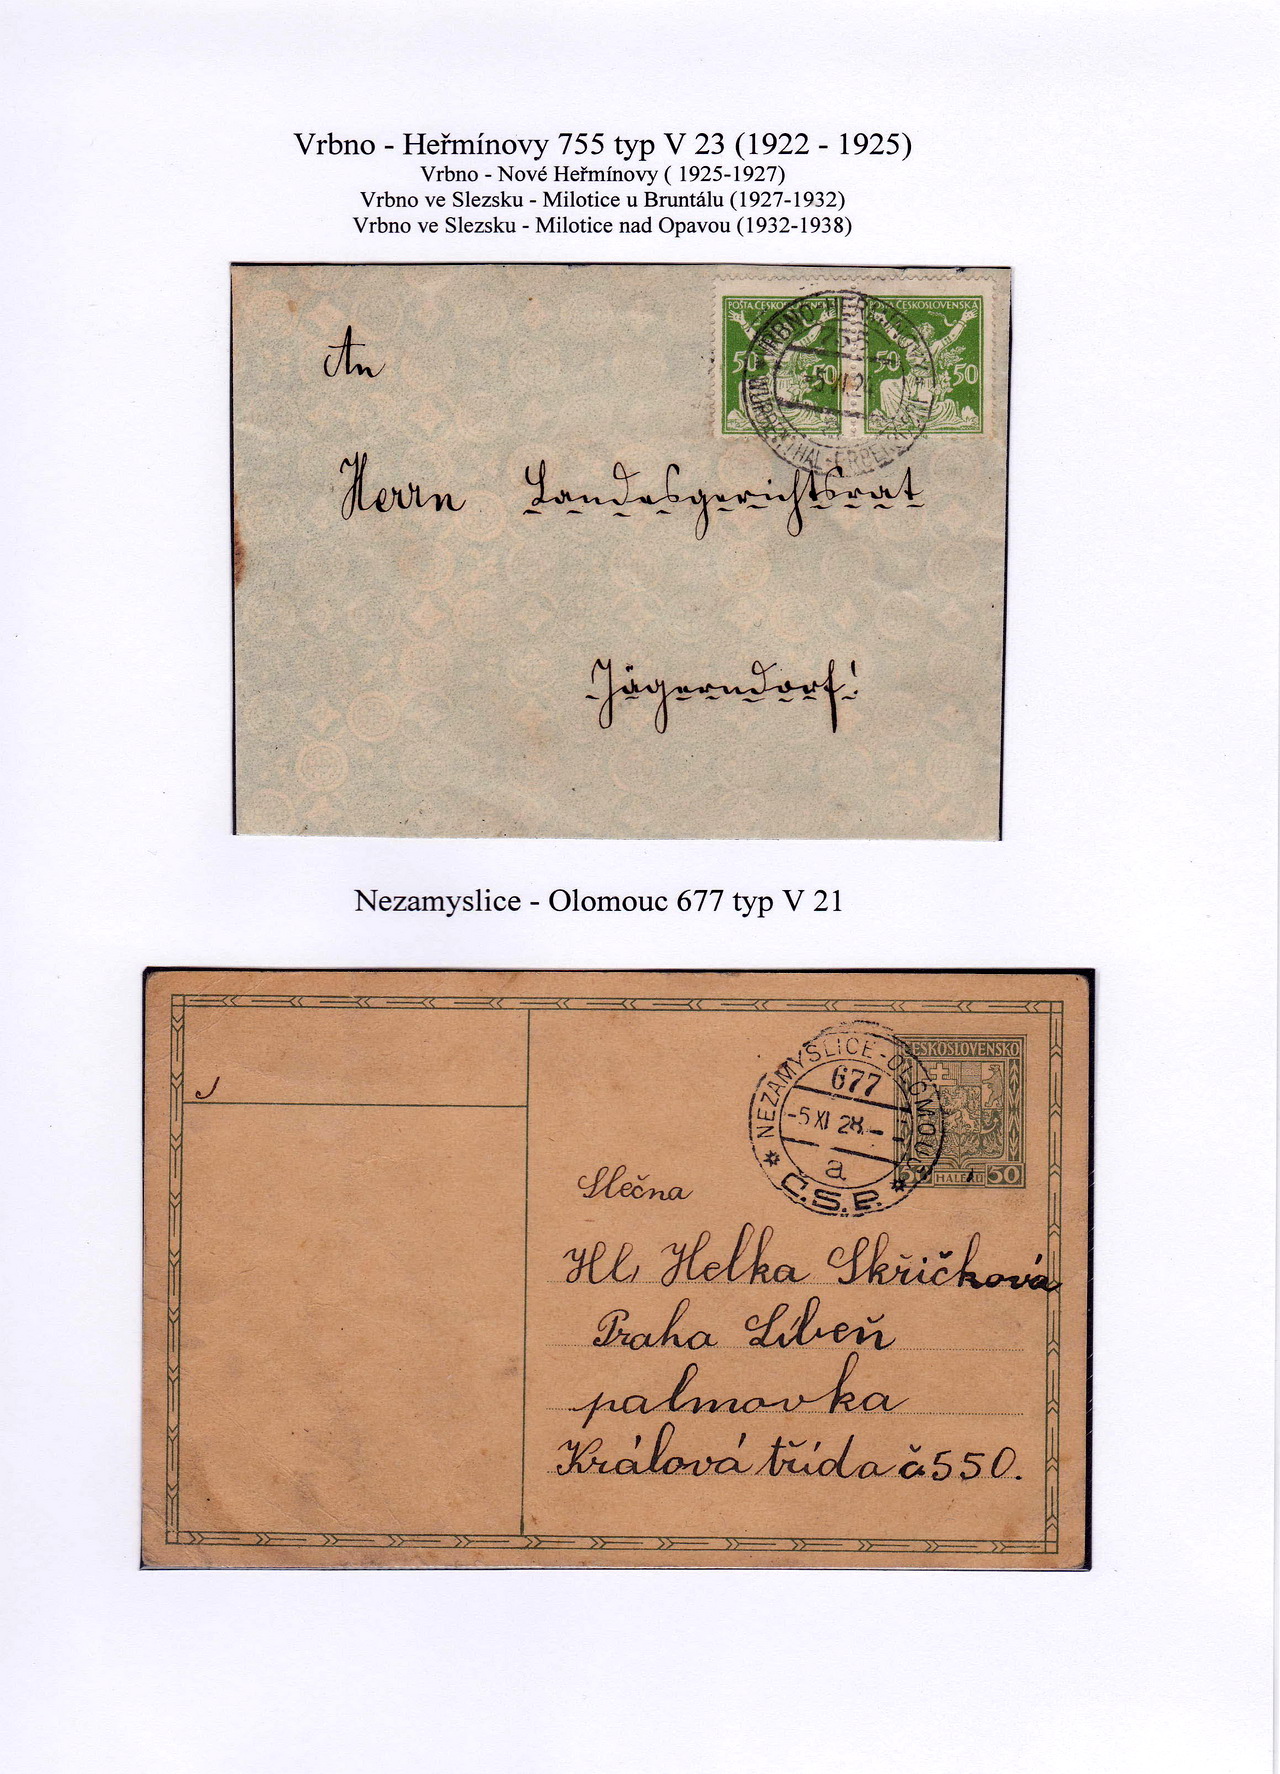 Vrbno - Heřmínovy 755 typ V 23 (1922 - 1925)
Vrbno - Nové Heřmínovy ( 1925-1927)
Vrbno ve Slezsku - Milotice u Bruntálu (1927-1932)
Vrbno ve Slezsku - Milotice nad Opavou (1932-1938)
POŠTA ČESKOSLOVENSKÁ
ČESKOSLOVENSKÁ
50 50 50 50
VRBNO-HEŘMÍNOVY
755
-5 VI 2
WÜRBENTHAL-ERBERSDORF
An
Herrn Landesgerichtsrat
Jägerndorf!
Nezamyslice - Olomouc 677 typ V 21
NEZAMYSLICE-OLOMOUC
677
-5 XI 28.-
a
Č.S.P.
ČESKOSLOVENSKO
50 HALÉŘŮ 50
Slečna
Hl, Helka Skřičková
Praha Líbeň
palmovka
Králová třída č 550.